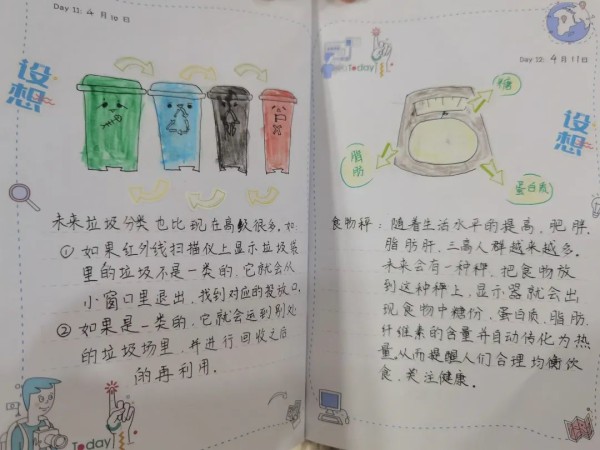 Day 11: 4 月 10 日
设想
未来垃圾分类也比现在高级很多.如:
① 如果红外线扫描仪上显示垃圾袋
里的垃圾不是一类的,它就会从
小窗口里退出,找到对应的投放口,
② 如果是一类的,它就会运到别处
的垃圾场里,并进行回收之后
的再利用.
Today
Today
Day 12: 4 月 11 日
设想
糖
脂肪
蛋白质
食物秤:随着生活水平的提高,肥胖,
脂肪肝,三高人群越来越多.
未来会有一种秤,把食物放
到这种秤上,显示器就会出
现食物中糖份,蛋白质,脂肪,
纤维素的含量并自动传化为热
量.从而提醒人们合理均衡饮
食,关注健康.